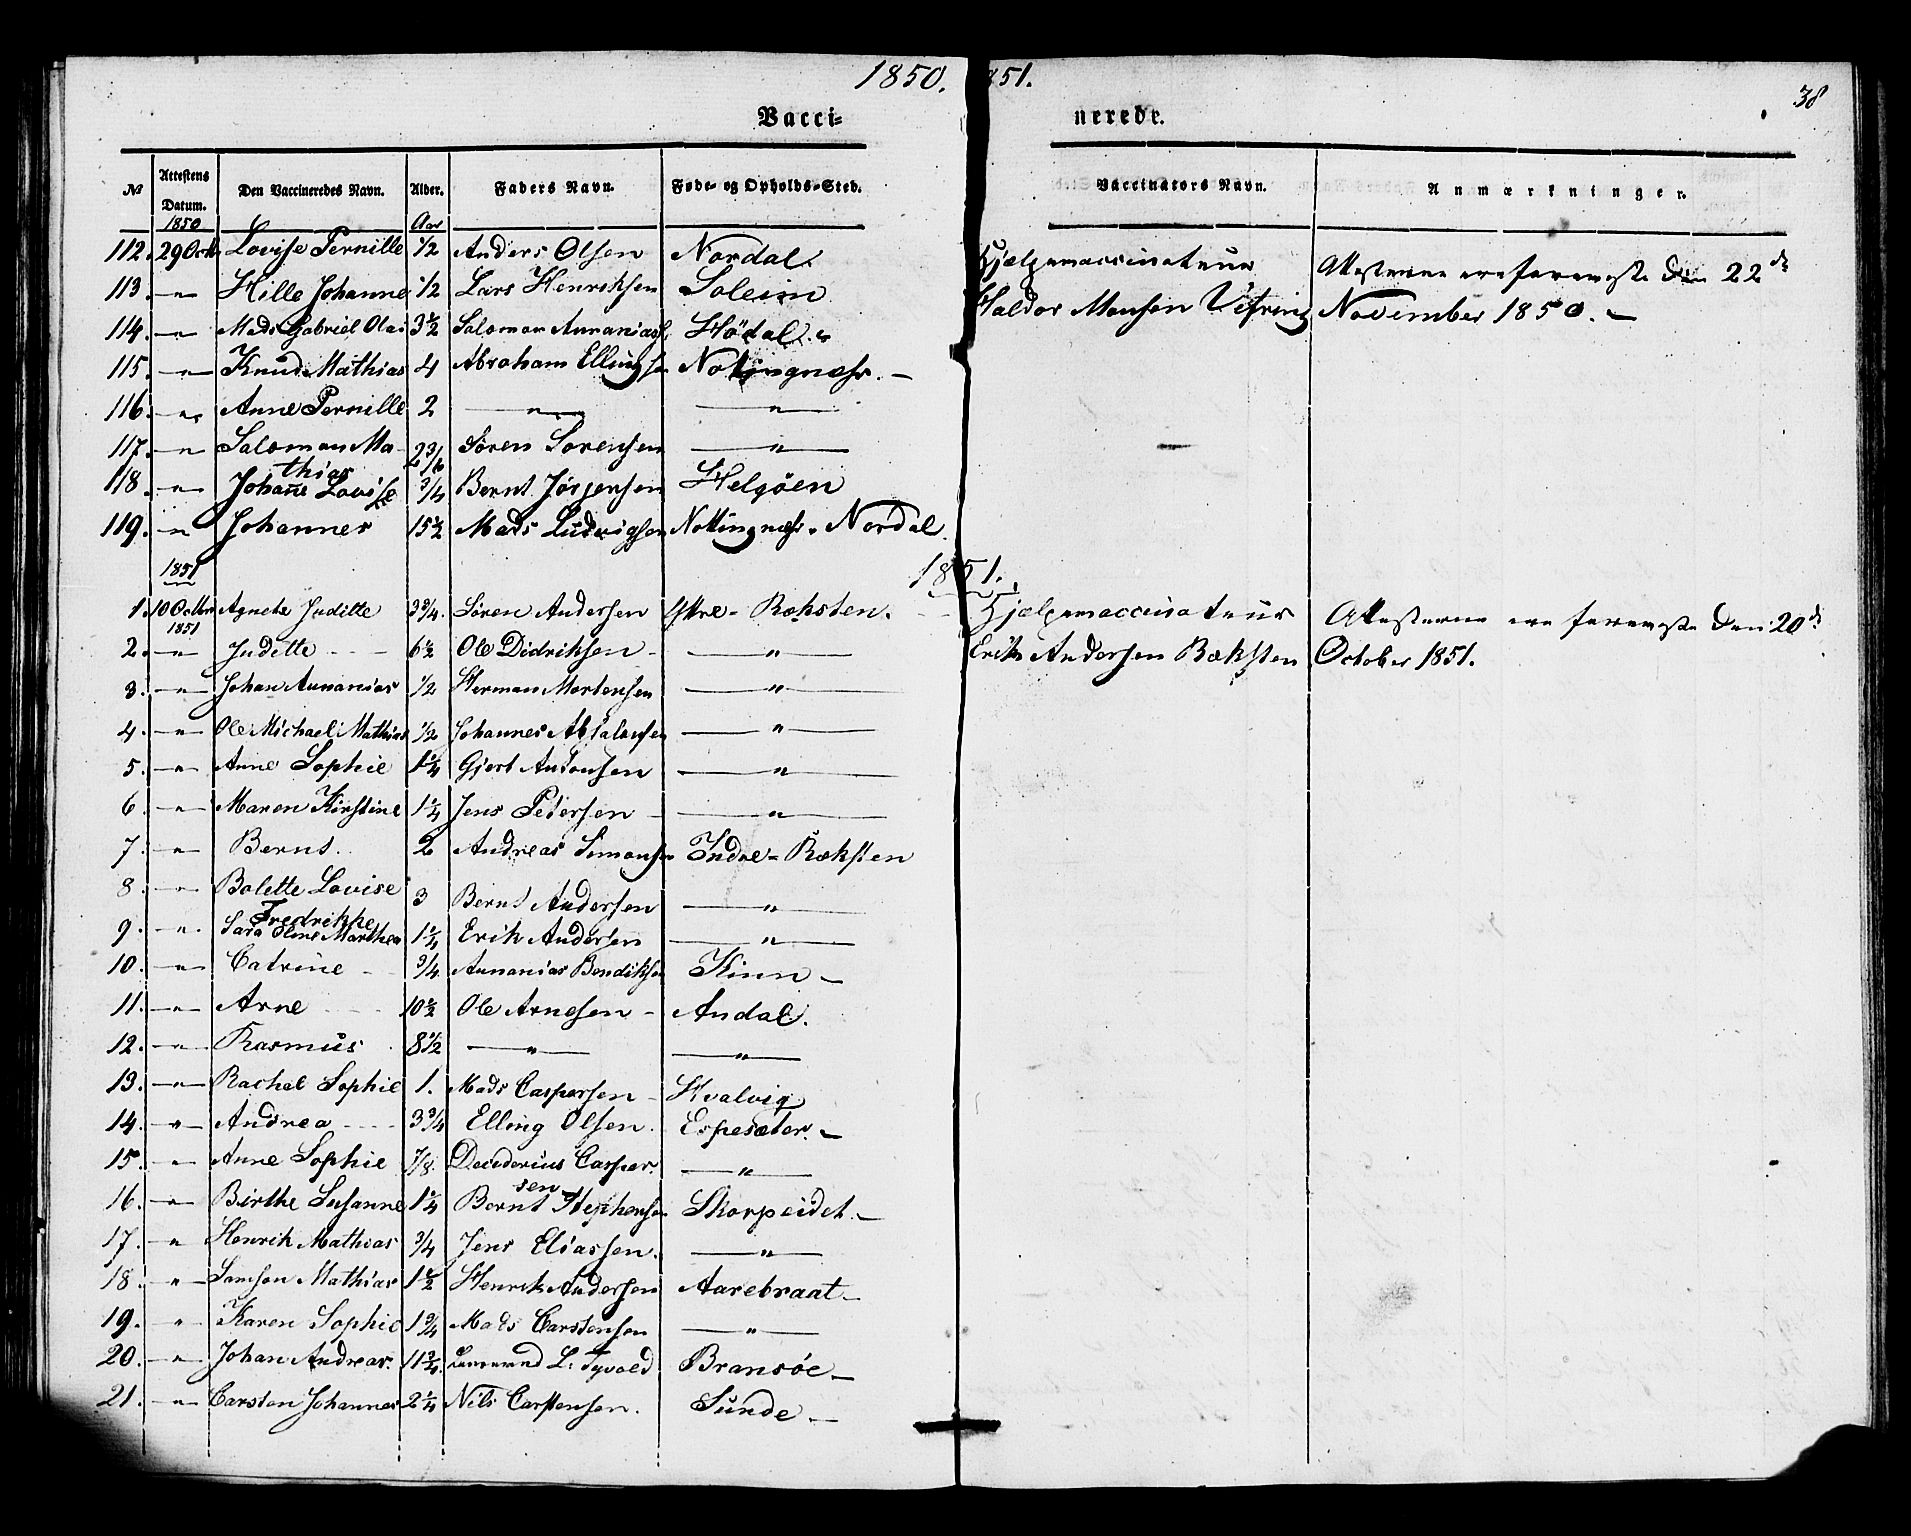 1850. 851.
38
Vacci= nerede.
No | Attestens Datum. | Den Vaccineredes Navn. | Alder. | Faders Navn. | Føde- og Opholds-Sted. | Vaccinators Navn. | Anmærkninger.
1850 | Aar
112. | 29 Octb | Lovise Pernille | 1/2 | Anders Olsen | Nordal. | Hjælpevaccinateur | Attesterne ere foreviste den 22de
113. | —"— | Hille Johanne | 1/2 | Lars Henriksen | Soleim | Haldor Monsen Vefring | November 1850. —
114. | —"— | Mads Gabriel Olai | 3 1/2 | Salomon Ananiass. | Hödal. "
115. | —"— | Knud Mathias | 4 | Abraham Ellingsen | Nottingnæss. —
116. | —"— | Anne Pernille | 2 | —"— | —"—
117. | —"— | Salomon Ma- | 2 | Sören Sörensen | —"—
thias
118. | —"— | Johanne Lovise | 3/4 | Bernt Jörgensen | Helgöen
119. | —"— | Johannes | 15 1/2 | Mads Ludvigsen | Nottingnæss. Nordal.
1851 | 1851.
1. | 10 Octbr | Agnete Juditte | 3 3/4. | Sören Andersen | Yttre- Ræksten. | Hjælpevaccinateur | Attesterne ere foreviste den 20de
1851
2. | —"— | Juditte | 6 1/2 | Ole Didriksen | —"— | Erik Andersen Ræksten | October 1851.
3. | —"— | Johan Annanias | 1/2 | Herman Mortensen | —"—
4. | —"— | Ole Michael Mathias | 1/2 | Johannes Absalonsen | —"—
5. | —"— | Anne Sophie | 1 1/4 | Gjert Antonsen | —"—
6. | —"— | Maren Kirstine | 1 1/4 | Jens Petersen | —"—
7. | —"— | Bernt. | 2 | Andreas Simonsen | Indre- Ræksten
8. | —"— | Bolette Lovise | 3 | Bernt Andersen | —"—
Fredrikke
9. | —"— | Sara Oline Marthea | 1 1/4 | Erik Andersen | —"—
10. | —"— | Catrine | 3/4 | Annanias Bendiksen | Kinn —
11. | —"— | Arne | 10 1/2 | Ole Arnesen | Andal.
12. | —"— | Rasmus | 8 1/2 | —"— | —"—
13. | —"— | Rachel Sophie | 1. | Mads Caspersen | Hvalvig
14. | —"— | Andrea | 3 3/4 | Elling Olsen | Espesæter. —
15. | —"— | Anne Sophie | 7/8. | Decederius Casper- | —"—
sen
16. | —"— | Birthe Susanne | 1 1/4 | Bernt Stephensen | Skorpeidet. —
17. | —"— | Henrik Mathias | 3/4 | Jens Eliassen. | —"—
18. | —"— | Samson Mathias | 1 1/2 | Henrik Andersen | Aarebraat —
19. | —"— | Karen Sophie | 1 3/4 | Mads Carstensen | —"—
20. | —"— | Johan Andreas. | 11 3/4. | L. Tyvold | Bransöe —
21. | —"— | Carsten Johannes | 2 1/4 | Nils Carstensen. | Sunde —